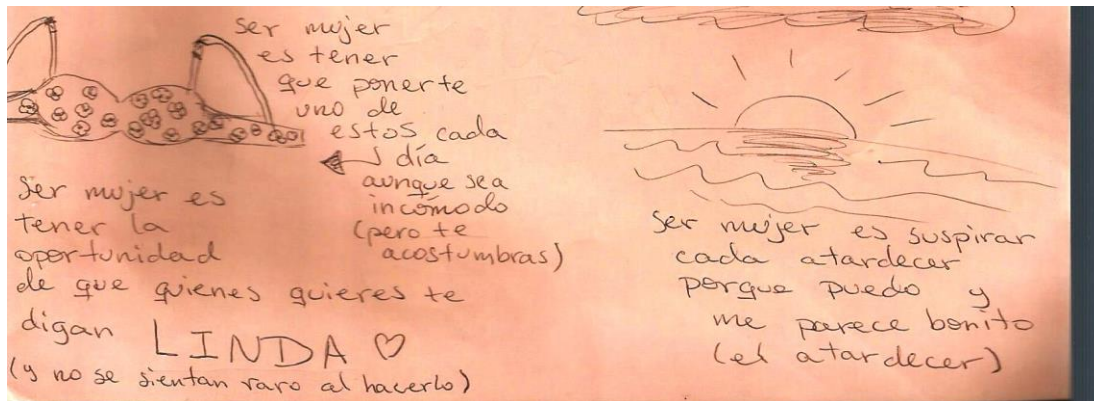 Ser mujer
es tener
que ponerte
uno de
estos cada
día
aunque sea
incómodo
(pero te
acostumbras)
Ser mujer es
tener la
oportunidad
de que quienes quieres te
digan LINDA ♡
(y no se sientan raro al hacerlo)
Ser mujer es suspirar
cada atardecer
porque puedo y
me parece bonito
(el atardecer)